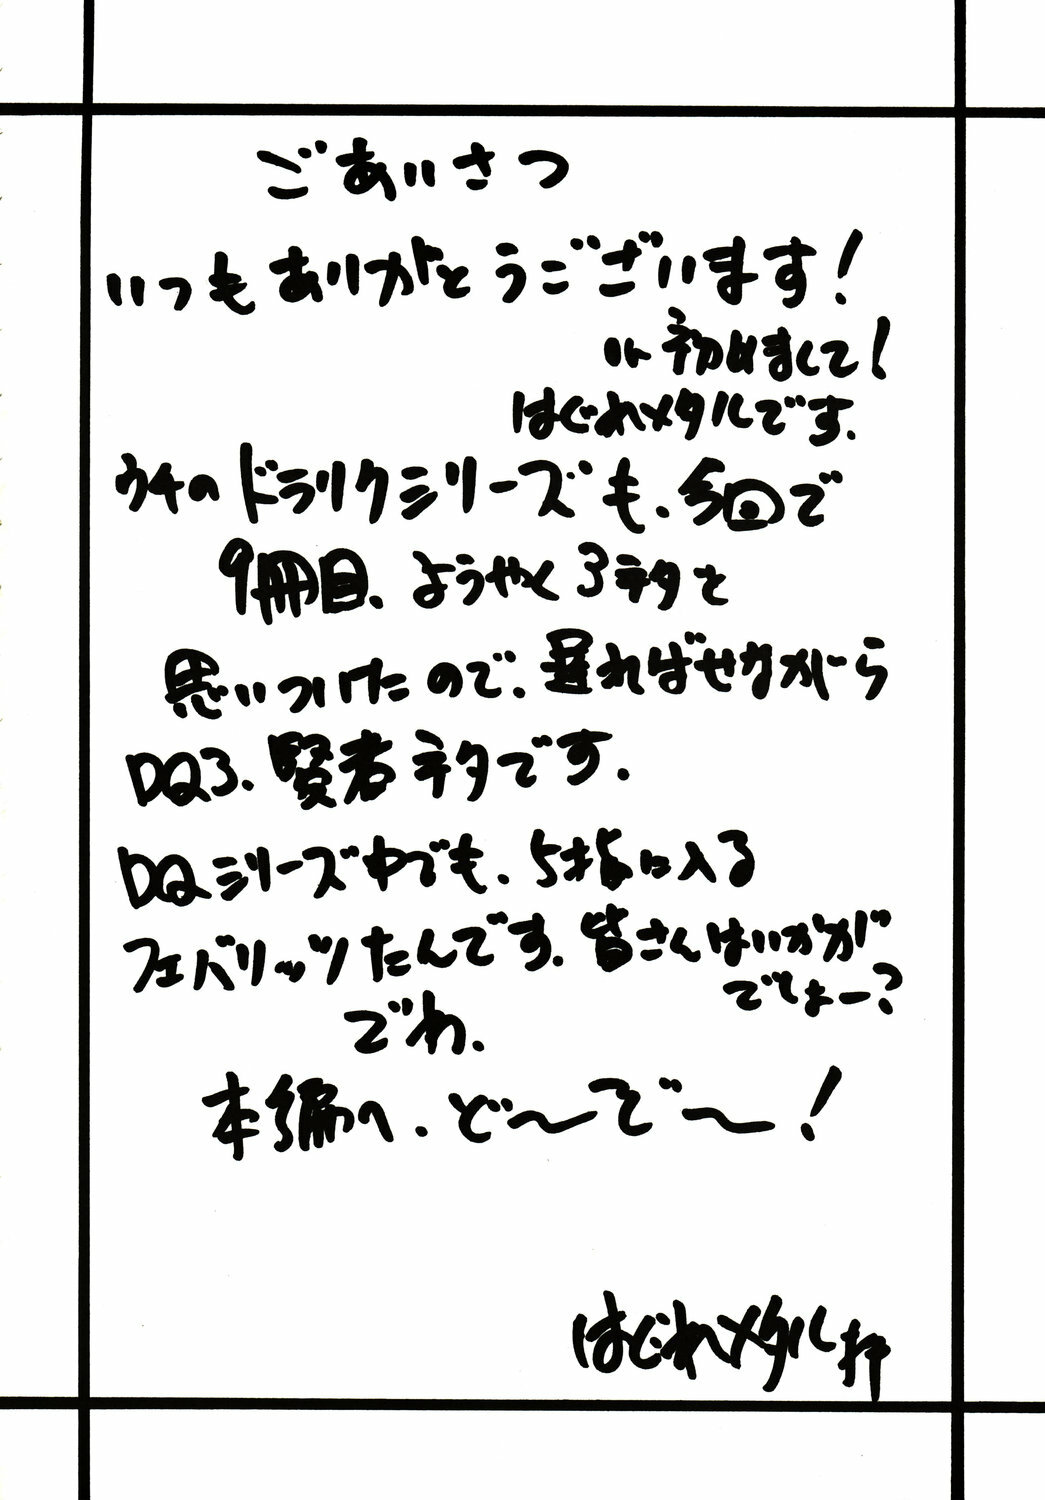 ごあいさつ
いつもありがとうございます!
初めまして!
はぐれメタルです.
ウチのドラクリシリーズも、今回で
9冊目、ようやく3ネタを
思いついたので、遅ればせながら
DQ3、賢者ネタです.
DQシリーズ中でも、5指に入る
フェバリッツたんです.皆さんはいかが
でしょー?
でわ、
本編へ、ど~ぞ~!
はぐれメタル拝